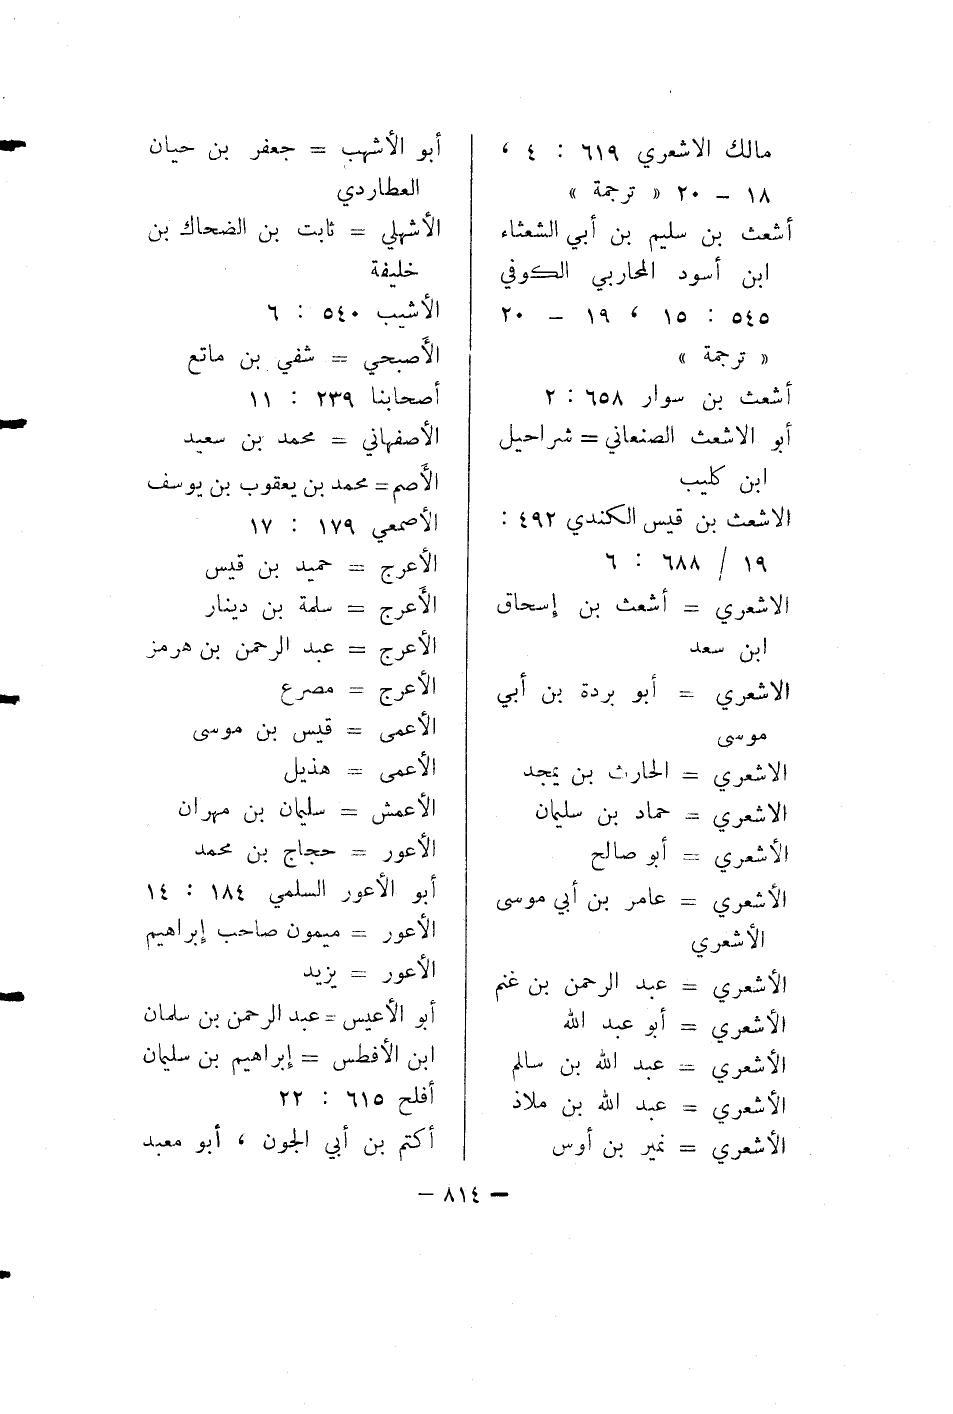 مالك الاشعري ٦١٩ : ٤ ،
١٨ – ٢٠ « ترجمة »
أشعث بن سليم بن أبي الشعثاء
ابن أسود المحاربي الكوفي
٥٤٥ : ١٥ ، ١٩ – ٢٠
« ترجمة »
أشعث بن سوار ٦٥٨ : ٢
أبو الاشعث الصنعاني = شراحيل
ابن كليب
الاشعث بن قيس الكندي ٤٩٢ :
١٩ / ٦٨٨ : ٦
الاشعري = أشعث بن إسحاق
ابن سعد
الاشعري = أبو بردة بن أبي
موسى
الاشعري = الحارث بن يمجد
الاشعري = حماد بن سليمان
الأشعري = أبو صالح
الأشعري = عامر بن أبي موسى
الأشعري
الأشعري = عبد الرحمن بن غنم
الأشعري = أبو عبد الله
الأشعري = عبد الله بن سالم
الأشعري = عبد الله بن ملاذ
الأشعري = نمير بن أوس
أبو الأشهب = جعفر بن حيان
العطاردي
الأشهلي = ثابت بن الضحاك بن
خليفة
الأشيب ٥٤٠ : ٦
الأصبحي = شفي بن ماتع
أصحابنا ٢٣٩ : ١١
الأصفهاني = محمد بن سعيد
الأصم = محمد بن يعقوب بن يوسف
الأصمعي ١٧٩ : ١٧
الأعرج = حميد بن قيس
الأعرج = سلمة بن دينار
الأعرج = عبد الرحمن بن هرمز
الأعرج = مصرع
الأعمى = قيس بن موسى
الأعمى = هذيل
الأعمش = سليمان بن مهران
الأعور = حجاج بن محمد
أبو الأعور السلمي ١٨٤ : ١٤
الأعور = ميمون صاحب إبراهيم
الأعور = يزيد
أبو الأعيس = عبد الرحمن بن سلمان
ابن الأفطس = إبراهيم بن سليمان
أفلح ٦١٥ : ٢٢
أكتم بن أبي الجون ، أبو معبد
– ٨١٤ –